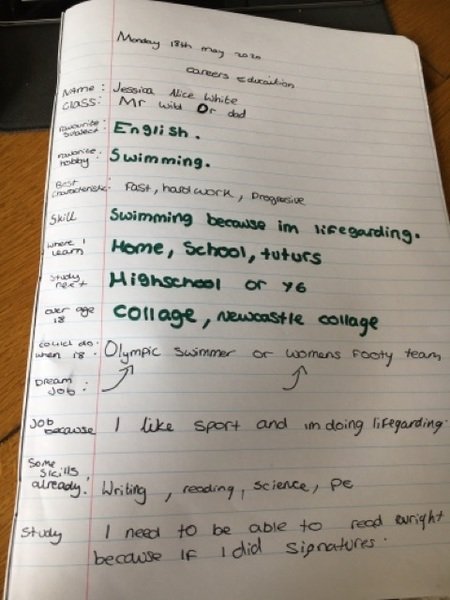 Monday 18th may 2020
careers Education
Name: Jessica Alice White
Class: Mr wild Or dad
favourite subject: English.
favorite hobby: Swimming.
Best characteristic: Fast, hard work, Progressive
Skill Swimming because im lifegarding.
where I learn Home, School, tuturs
Study next Highschool or y6
over age 18 Collage, Newcastle collage
could do when 18: Olympic swimmer or womens footy team
DREAM Job:
Job because I like sport and im doing lifegarding.
Some skills already. Writing, reading, science, pe
Study I need to be able to read
because if I did signatures.